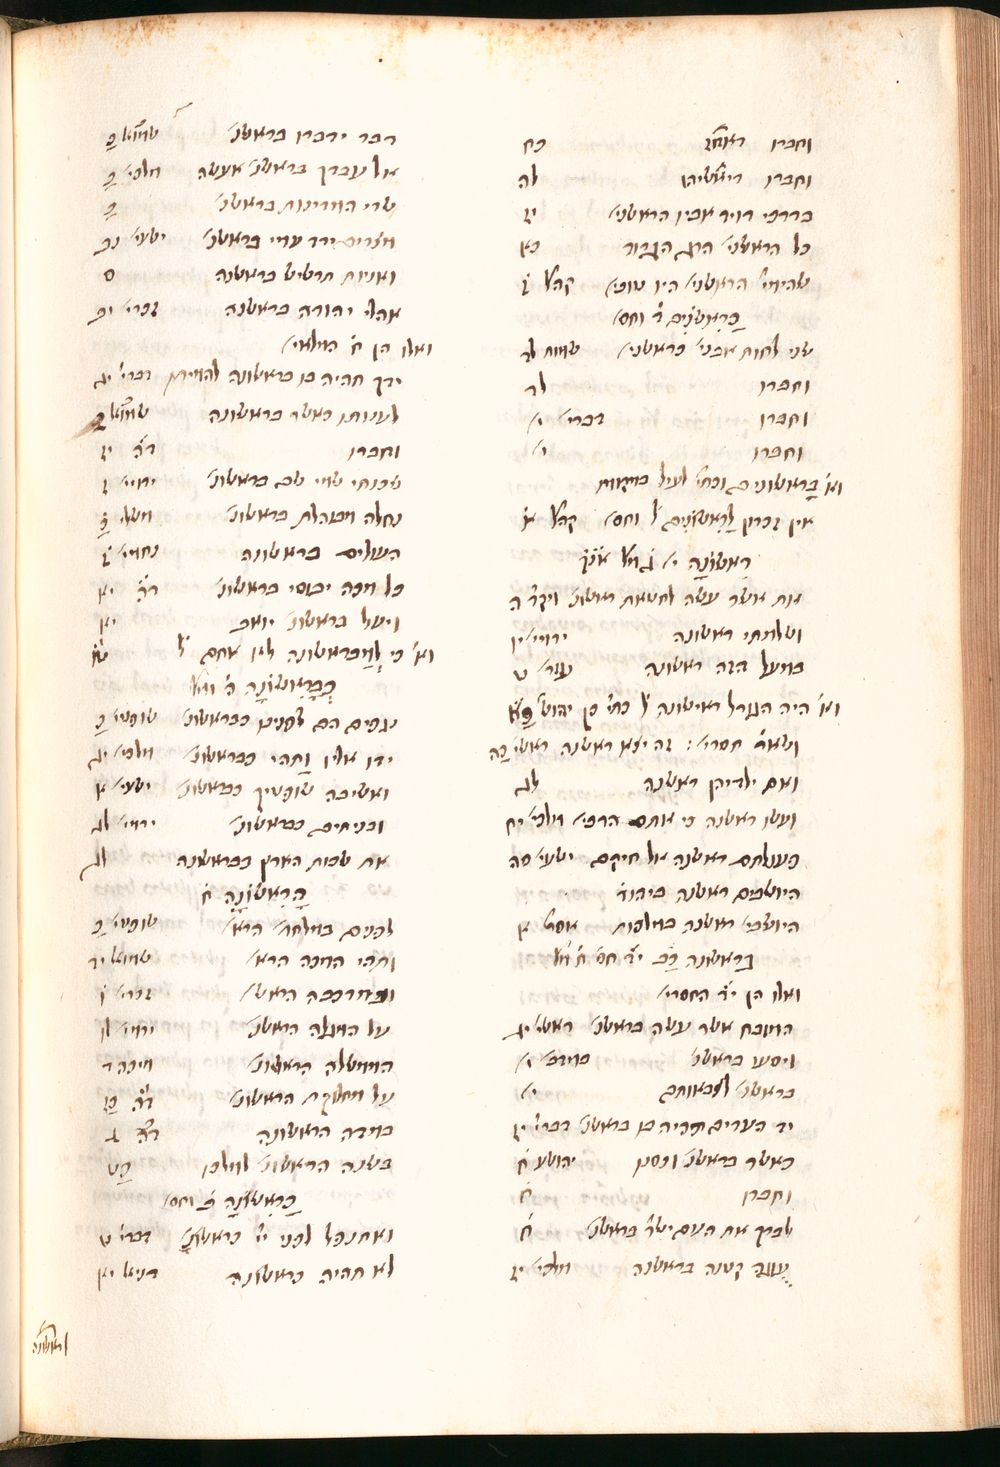 וחברו ראשו׳ כח
וחברו לה
בדרכי דויד אביו הראשני׳ יז
כל הראשני׳ הרג הגדוד כא
שהימי׳ הראשני׳ היו טובי׳ קהל׳ ז
כָּרִאשֹׁנִים ד̇ וחס׳
שני לוחות אבני׳ כראשני׳ שמות לד
וחברו לד
וחברו דברי׳ י׳
וחברו י׳
וא׳ בראשונים וכתי׳ לעיל
אין זכרון לָרִאשֹׁנִים ל̇ וחס׳ קהל׳ א̇
רִאשׁוֹנָה י׳
את אשר עשה לחטאת ראשונ׳ ויקר׳ ה
ושלמתי ראשונה ירמי׳ יו
במעל הזה ראשונה עזר׳ ט
וא׳ היה הגורל ראישונה ל̇ כתי׳ כן יהוש׳ כא
ושאר̇ חסרי׳ : זה יצא ראשנה ראשי׳ לח
ואת ילדיהן ראשנה לג
ועשו ראשנה כי אתם הרבי׳ מלכי׳ יח
פעולתם ראשנה אל חיקם ישעי׳ סה
היושבים ראשנה
היושבי׳ ראשנה במלכות אסת׳ א
בראשונה
ואלו הן י̇ד̇ החסרי׳
המזבח אשר עשה בראשנ׳ ראשי׳ יג
ויסעו בראשנ׳ במדב׳ י׳
בראשנ׳ לצבאותם י׳
יד העדים תהיה בו בראשנ׳ דברי׳ יז
כאשר בראשנ׳ ונסנו יהושע ח̇
וחברו ח̇
לברך את העם ישר׳ בראשנ׳ ח̇
עוגה קטנה בראשנה מלכי׳ יז
דבר ידברו בראשנ׳ שמוא׳ כ
אל עבדך בראשנ׳ אעשה מלכי׳ כ
שרי המדינות בראשנ׳ כ
מצרים ירד עמי בראשנ׳ ישעי׳ נב
ואניות תרשיש בראשנה ס
אהלי יהודה בראשנה זכרי׳ יב
ואלו הן ח̇ המלאי׳
ידך תהיה בו בראשונה להמיתו דברי׳ יג
לענותו כאשר בראשונה שמוא׳ ב
וחברו ד̇ה̇ יז
שכנתי שמי שם בראשונ׳ ירמי׳ ז
נחלה מבוהלת בראשונ׳ משלי׳ כ
העולים בראשונה נחמי׳ ז
כל מכה יבוסי בראשונ׳ ד̇ה̇ יא
ויעל בראשונ׳ יואב יא
וא׳ כי לְמַבראשונה לא אתם ל̇ טו
כְּבָרִאשׁוֹנָה ה̇ ומל׳
נגפים הם לפנינו כבראשונ׳ שופטי׳ כ
ידו אליו ותהי כבראשונ׳ מלכי׳ יג
ואשיבה שופטיך כבראשונ׳ ישעי׳ א
ובניתים כבראשונ׳ ירמי׳ לג
את שבות הארץ כבראשונה לג
הָרִאשׁוֹנָה ח̇
לפנינו במלחמ׳ הרא׳ שופטי׳ כ
ותהי המכה הרא׳ שמוא׳ יד
במרכבה הראש׳ זכרי׳ ו̇
על המגלה הראשנ׳ ירמי׳ לו
הממשלה הראשונ׳ מיכה ד
על מחלקת הראשונ׳ ד̇ה̇ כז
במדה הראשונה ד̇ה̇ ג
בשנה הראשונ׳ למלכו כט
כָּרִאשֹׁנָה ב̇ וחס׳
ואתנפל לפני י״י כראשנ׳ דברי׳ ט
לא תהיה כראשונה דניאל יא
לראשונה